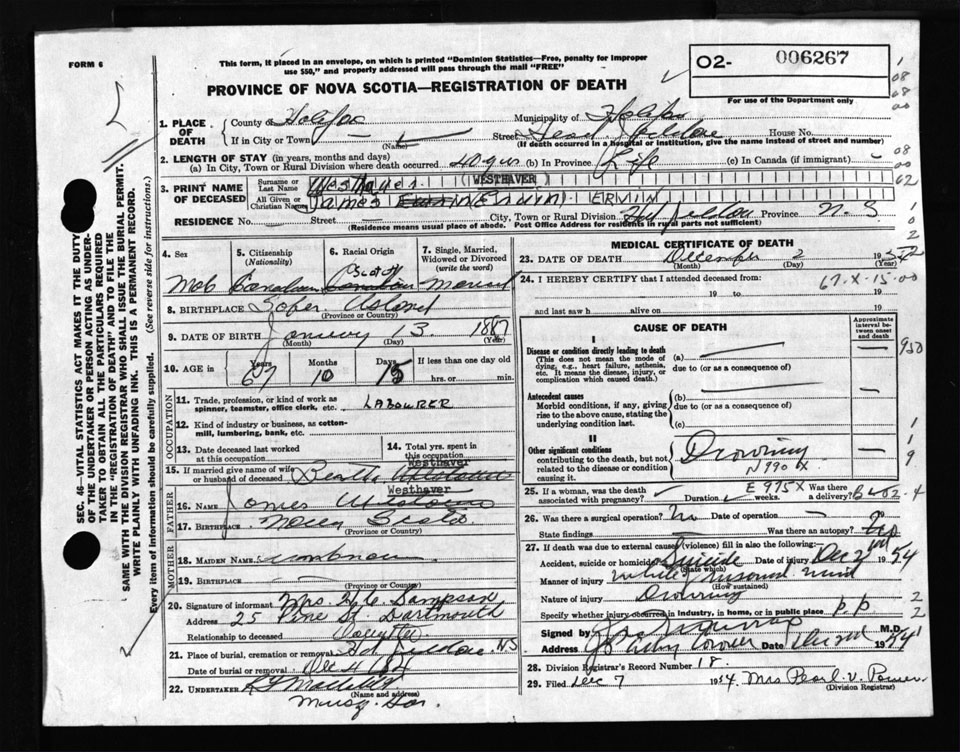 FORM 6
This form, if placed in an envelope, on which is printed "Dominion Statistics—Free, penalty for improper
use $50," and properly addressed will pass through the mail "FREE"
O2- 006267
For use of the Department only
PROVINCE OF NOVA SCOTIA—REGISTRATION OF DEATH
1. PLACE OF DEATH
County of Halifax Municipality of Halifax
If in City or Town (Name) Street House No.
(If death occurred in a hospital or institution, give the name instead of street and number)
2. LENGTH OF STAY (in years, months and days)
(a) In City, Town or Rural Division where death occurred 40 yrs (b) In Province Life (c) In Canada (if immigrant) -
3. PRINT NAME OF DECEASED
Surname or Last Name Westhaver (WESTHAVER)
All Given or Christian Names James Erwin (Ervin) ERVIN
RESIDENCE No. Street City, Town or Rural Division Province N.S
(Residence means usual place of abode. Post Office Address for residents in rural parts not sufficient)
4. Sex
5. Citizenship (Nationality)
6. Racial Origin
7. Single, Married, Widowed or Divorced (write the word)
Canadian Scotch Married
8. BIRTHPLACE Island
(Province or Country)
9. DATE OF BIRTH January 13 1887
(Month) (Day) (Year)
10. AGE in Years Months Days If less than one day old
67 10 15 hrs. or min.
OCCUPATION
11. Trade, profession or kind of work as spinner, teamster, office clerk, etc. LABOURER
12. Kind of industry or business, as cotton-mill, lumbering, bank, etc.
13. Date deceased last worked at this occupation
14. Total yrs. spent in this occupation
15. If married give name of wife or husband of deceased Westhaver
FATHER
16. Name James Westhaver
17. BIRTHPLACE Nova Scotia
(Province or Country)
MOTHER
18. MAIDEN NAME unknown
19. BIRTHPLACE —
(Province or Country)
20. Signature of informant Mrs. Sampson
Address 25 Pine St. Dartmouth
Relationship to deceased Daughter
21. Place of burial, cremation or removal NS
Date of burial or removal Dec 4
22. UNDERTAKER
(Name and address)
MEDICAL CERTIFICATE OF DEATH
23. DATE OF DEATH December 2 19
(Month) (Day) (Year)
24. I HEREBY CERTIFY that I attended deceased from
19 to 19
and last saw h alive on 19
67-X-15-00
CAUSE OF DEATH
Approximate interval between onset and death
I
Disease or condition directly leading to death (a)
(This does not mean the mode of dying, e.g., heart failure, asthenia, etc. It means the disease, injury, or complication which caused death.
due to (or as a consequence of)
Antecedent causes (b)
Morbid conditions, if any, giving rise to the above cause, stating the underlying condition last.
due to (or as a consequence of)
(c)
II
Other significant conditions contributing to the death, but not related to the disease or condition causing it.
Drowning
N990X
25. If a woman, was the death associated with pregnancy? Duration weeks. Was there a delivery?
E975X
26. Was there a surgical operation? No Date of operation —
State findings Was there an autopsy? No
27. If death was due to external causes (violence) fill in also the following:—
Accident, suicide or homicide? Suicide Date of injury Dec 2nd 1954
(State which)
Manner of injury While of unsound mind
(How sustained)
Nature of injury Drowning
Specify whether injury occurred in industry, in home, or in public place p p
Signed by M.D.
Address Date 1954
28. Division Registrar's Record Number 18
29. Filed Dec 7 1954 Mrs Pearl V. Power
(Division Registrar)
SEC. 46—VITAL STATISTICS ACT MAKES IT THE DUTY
OF THE UNDERTAKER OR PERSON ACTING AS UNDER-
TAKER TO OBTAIN ALL THE PARTICULARS REQUIRED
IN THE "REGISTRATION OF DEATH" AND TO FILE THE
SAME WITH THE DIVISION REGISTRAR WHO SHALL ISSUE THE BURIAL PERMIT.
WRITE PLAINLY WITH UNFADING INK. THIS IS A PERMANENT RECORD.
Every item of information should be carefully supplied. (See reverse side for instructions.)